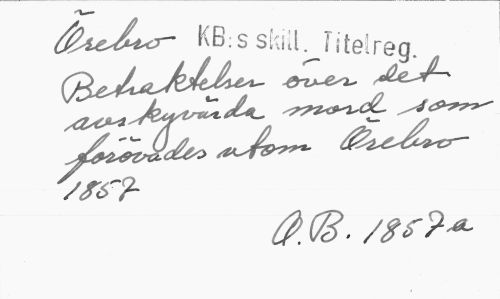 Örebro KB:s skill. Titelreg.
Betraktelser över det
avskyvärda mord som
förövades utom Örebro
1857
O.B. 1857a